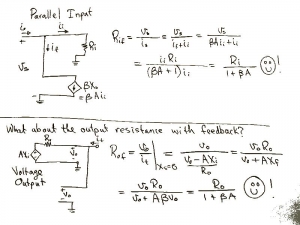 Parallel Input
is
ii
+
if
Ri
Vs
βXo
= βAii
-
Rif = Vs/is = Vs/(if+ii) = Vs/(βAii+ii)
= iiRi/((βA+1)ii) = Ri/(1+βA)
What about the output resistance with feedback?
AXi
Ro
it
Vo
Voltage
Output
+
Vo
-
Rof = Vo/it | Xs=0 = Vo/((Vo-AXi)/Ro) = VoRo/(Vo+AXf)
= VoRo/(Vo+AβVo) = Ro/(1+βA)